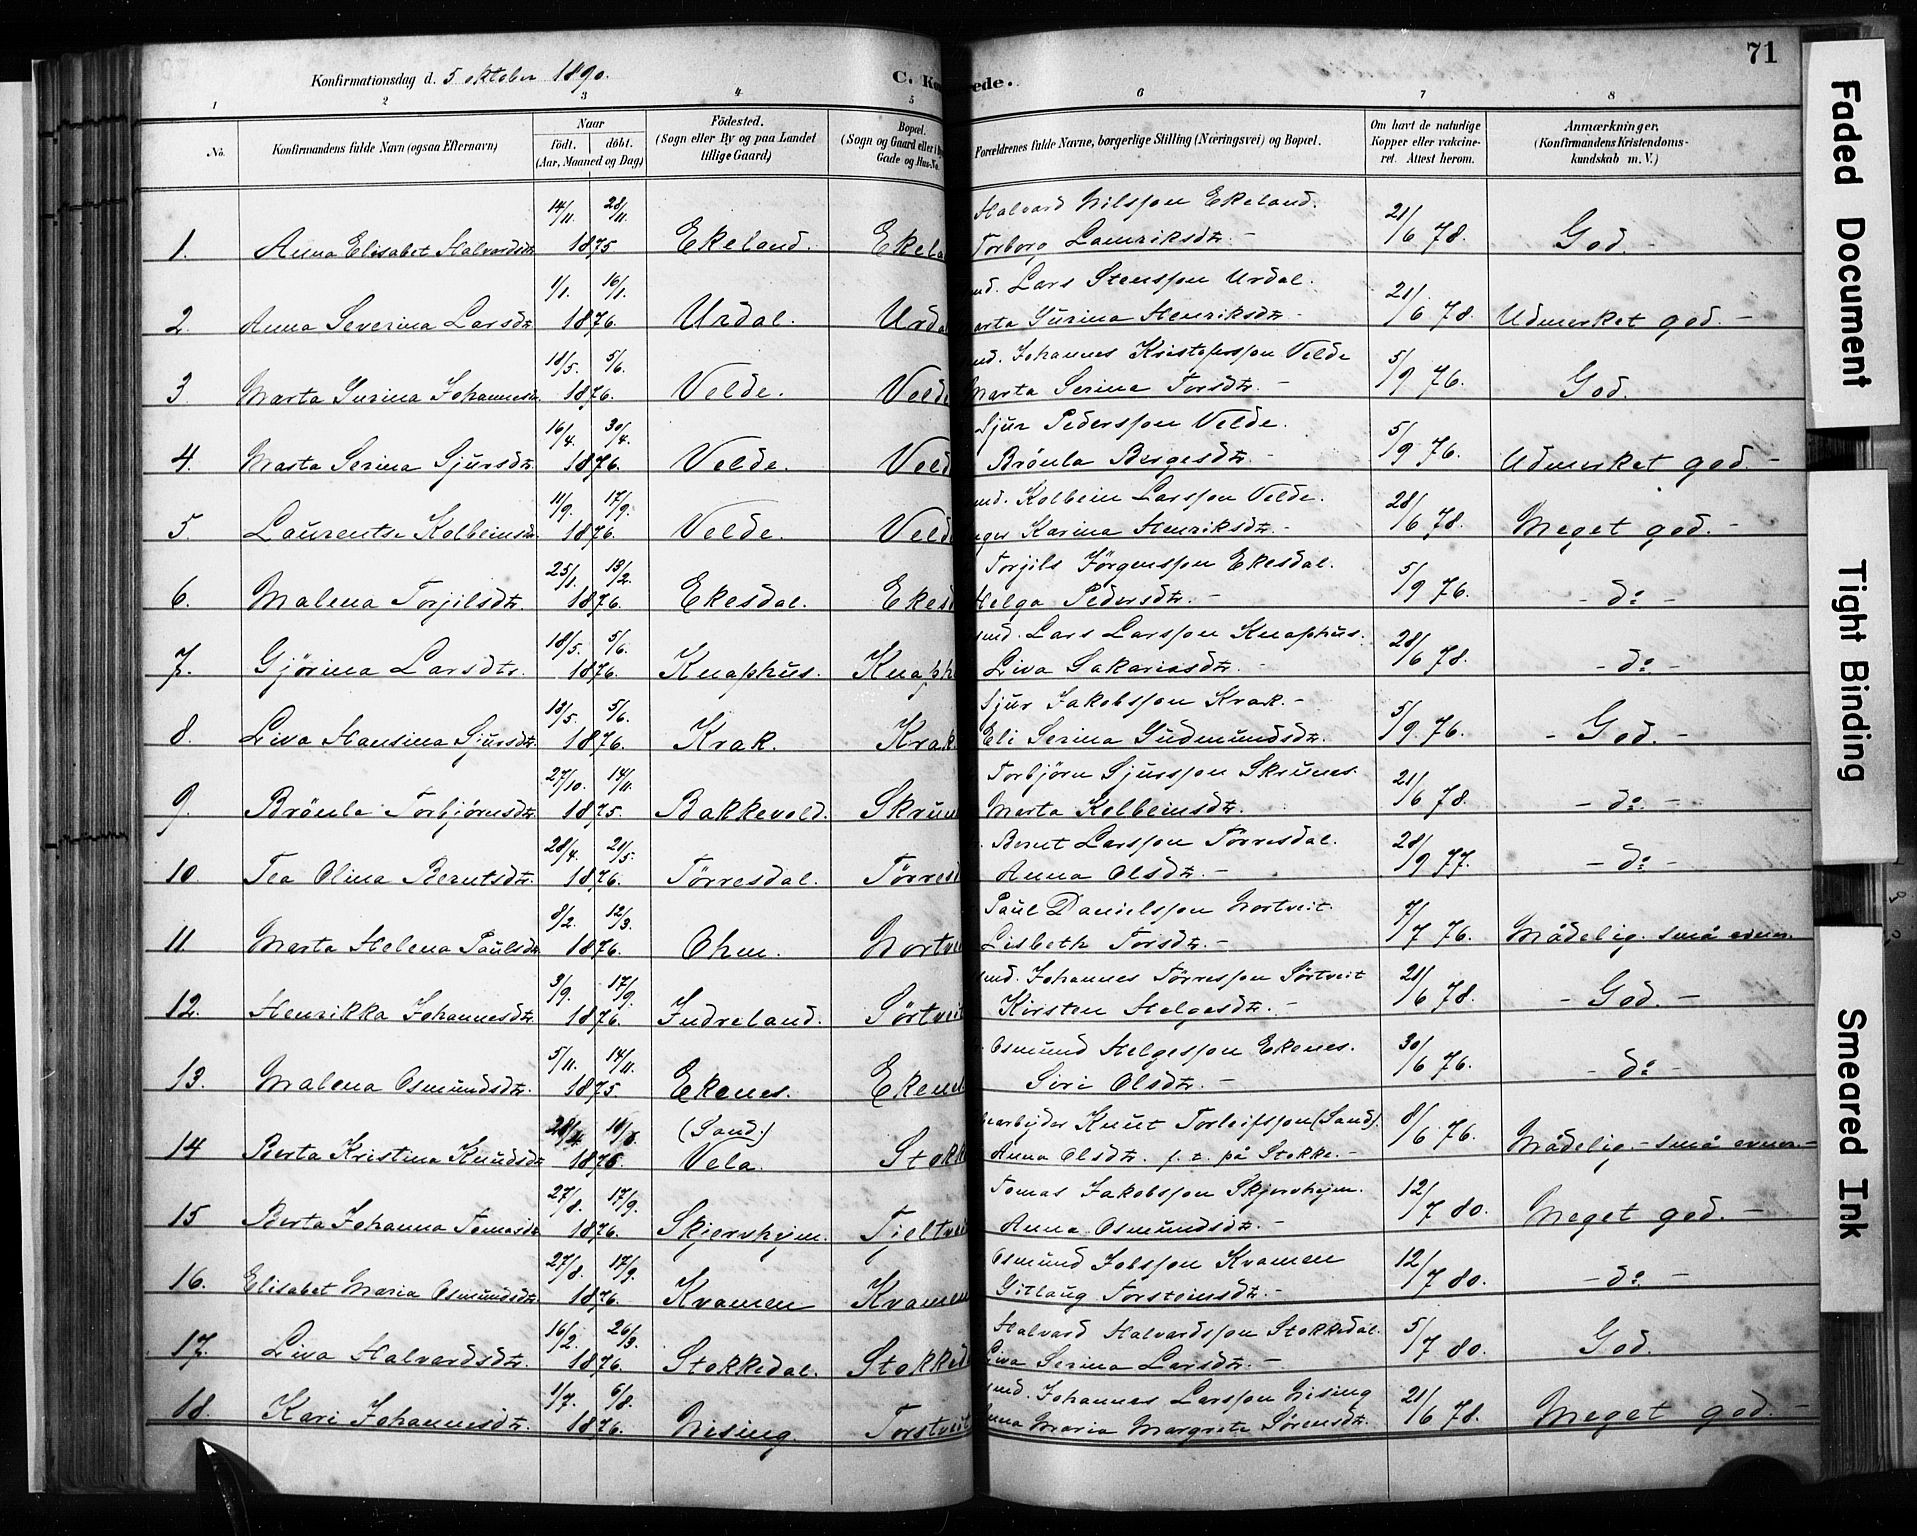 71
Konfirmationsdag d. 5 oktober 1890.
C. Ko ede.
1 2 3 4 5 6 7 8
No. Konfirmandens fulde Navn (ogsaa Efternavn) Naar födt. döbt. (Aar, Maaned og Dag) Födested. (Sogn eller By og paa Landet tillige Gaard) Bopæl. (Sogn og Gaard eller i By Gade og Hus-No. Forældrenes fulde Navne, borgerlige Stilling (Næringsvei) og Bopæl. Om havt de naturlige Kopper eller vakcineret. Attest herom. Anmærkninger. (Konfirmandens Kristendomskundskab m. V.)
14/11. 28/11. Halvard Nilsson Ekeland. 21/6 78.
1. Anna Elisabet Halvardsdtr. 1875 Ekeland. Ekela Torborg Lauriksdtr. - God -
1/1. 16/1. Lars Stensson Urdal. 21/6 78.
2. Anna Severina Larsdtr. 1876. Urdal. Urda arta Gurina Henriksdtr. - Udmerket god. -
18/5. 5/6. Johannes Kristofersson Velde 5/9 76.
3. Marta Gurina Johannesd. 1876. Velde. Veld Marta Serina Torsdtr. - God.
16/4. 30/4. Sjur Pedersson Velde. 5/9 76.
4. Marta Serina Sjursdtr. 1876. Velde. Veld Brönla Bergesdtr. - Udmerket god. -
11/9. 17/9. Kolbein Larsson Velde. 28/6 78.
5. Laurentse Kolbeinsd. 1876. Velde. Veld nger Karina Henriksdtr. - Meget god. -
25/1. 13/2. Torjils Jørgensson Ekesdal. 5/9 76.
6. Malena Torjilsdtr. 1876. Ekesdal. Ekesd Helga Pedersdtr. - - do -
18/5. 5/6. Lars Larsson Knaphus. 28/6 78.
7. Gjørina Larsdtr. 1876. Knaphus. Knaph Liva Sakariasdtr. - - do -
13/5. 5/6. Sjur Jakobsson Krak. - 5/9. 76.
8. Liva Hansina Sjursdtr. 1876. Krak. Krak Eli Serina Gudmundsdtr. - God. -
27/10. 14/11. Torbjörn Sjursson Skrunes. 21/6 78.
9. Brönla Torbjørnsdtr. 1875. Bakkevold. Skrun Marta Kolbeinsdtr. - do -
28/4. 21/5. Bernt Larsson Törresdal. 28/9 77.
10. Tea Olina Berntsdtr. 1876. Törresdal. Törresd Anna Olsdtr. - - do -
8/2. 12/3. Paul Danielsson Nortveit. 7/7 76.
11. Marta Helena Paulsdtr 1876. Ohm. Nortve Lisbeth Torsdtr. - Mådelig. små evner.
3/9. 17/9. Johannes Törresson Sörtveit 21/6 78.
12. Henrikka Johannesdtr. 1876. Indreland. Sörtveit Kirsten Helgesdtr. - - God. -
5/11. 14/11. Osmund Helgesson Ekenes. 30/6 76.
13. Malena Osmundsdtr. 1875. Ekenes. Ekene Siri Olsdtr. - - do -
28/4. (Sand.) Knut Torleifsson (Sand). 8/6 76.
14 Berta Kristina Knudsdtr 1876. Vela. Stokk Anna Olsdtr. f. t. på Stokke. - Mådelig. - små evner. -
27/8. 17/9. Tomas Jakobsson Skjervhejm. 12/7 80.
15 Berta Johanna Tomasdtr 1876. Skjervhejm. Tjeltve Anna Osmundsdtr. - Meget god. -
27/8. 17/9. Osmund Jobsson Kvamen 12/7 80.
16. Elisabet Maria Osmundsdtr. 1876. Kvamen Kvamen Gitlaug Torsteinsdtr. - - do -
16/2. 26/3. Halvard Halvardsson Stokkedal. 5/7 80.
17. Liva Halvardsdtr. 1876. Stokkedal. Stokked Liva Serina Larsdtr. - God.
1/7. 6/8. Johannes Larsson Nising 21/6 78.
18. Kari Johannesdtr. 1876. Nising. Torstveit Anna Maria Margrete Sørensdtr. Meget god. -
Faded Document
Tight Binding
Smeared Ink